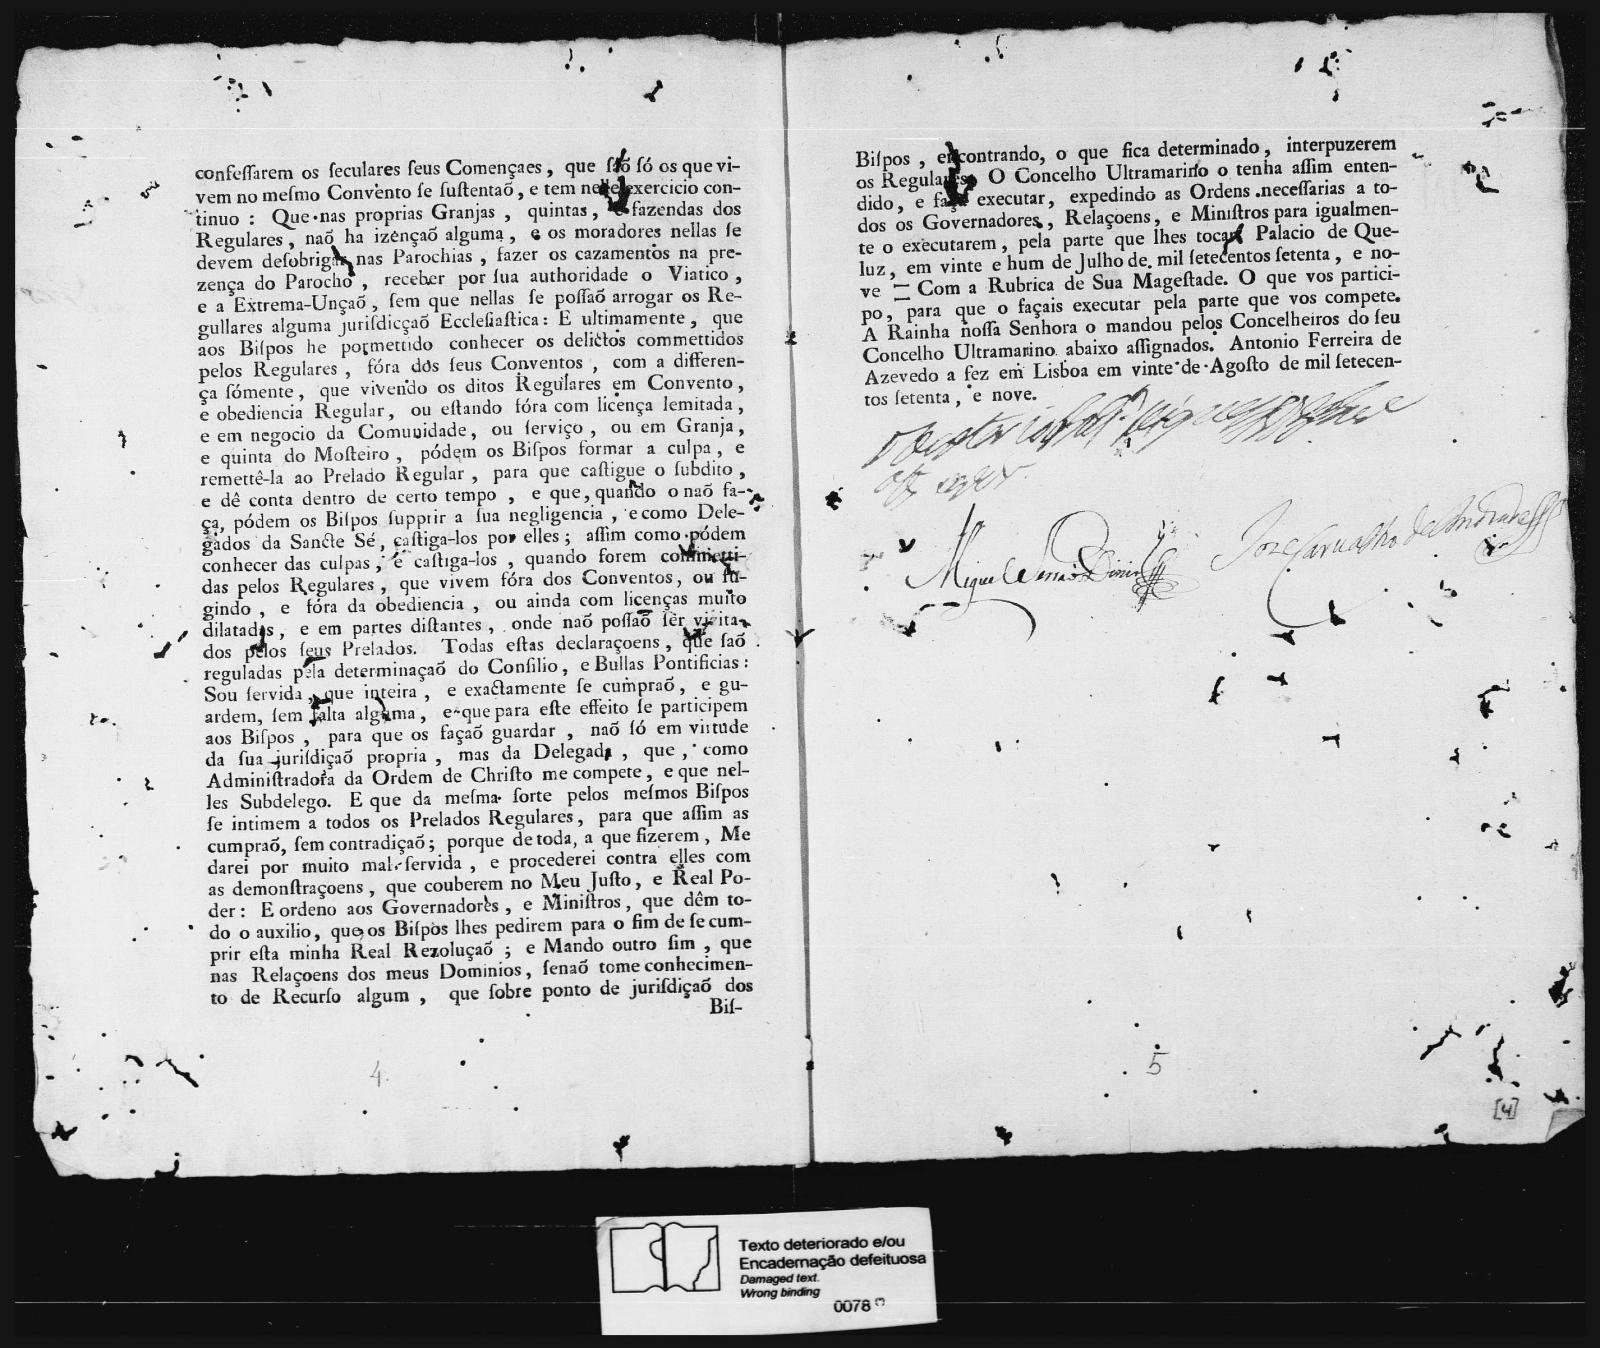 confeſſarem os ſeculares ſeus Començaes, que ſaõ ſó os que vi-
vem no meſmo Convento ſe ſuſtentaõ, e tem nelle exercicio con-
tinuo : Que nas proprias Granjas, quintas, e fazendas dos
Regulares, naõ ha izençaõ alguma, e os moradores nellas ſe
devem deſobrigar nas Parochias, fazer os cazamentos na pre-
zença do Parocho, receber por ſua authoridade o Viatico,
e a Extrema-Unçaõ, ſem que nellas ſe poſſaõ arrogar os Re-
gullares alguma juriſdicçaõ Eccleſiaſtica: E ultimamente, que
aos Biſpos he permettido conhecer os delictos commettidos
pelos Regulares, fóra dos ſeus Conventos, com a differen-
ça ſómente, que vivendo os ditos Regulares em Convento,
e obediencia Regular, ou eſtando fóra com licença lemitada,
e em negocio da Comunidade, ou ſerviço, ou em Granja,
e quinta do Moſteiro, pódem os Biſpos formar a culpa, e
remettê-la ao Prelado Regular, para que caſtigue o ſubdito,
e dê conta dentro de certo tempo, e que, quando o naõ fa-
ça, pódem os Biſpos ſupprir a ſua negligencia, e como Dele-
gados da Sancte Sé, caſtiga-los por elles; aſſim como pódem
conhecer das culpas, e caſtiga-los, quando forem commetti-
das pelos Regulares, que vivem fóra dos Conventos, ou fu-
gindo, e fóra da obediencia, ou ainda com licenças muito
dilatadas, e em partes diſtantes, onde naõ poſſaõ ſer vizita-
dos pelos ſeus Prelados. Todas eſtas declaraçoens, que ſaõ
reguladas pela determinaçaõ do Conſilio, e Bullas Pontificias:
Sou ſervida, que inteira, e exactamente ſe cumpraõ, e gu-
ardem, ſem falta alguma, e que para eſte effeito ſe participem
aos Biſpos, para que os façaõ guardar, naõ ſó em virtude
da ſua juriſdiçaõ propria, mas da Delegada, que, como
Adminiſtradora da Ordem de Chriſto me compete, e que nel-
les Subdelego. E que da meſma ſorte pelos meſmos Biſpos
ſe intimem a todos os Prelados Regulares, para que aſſim as
cumpraõ, ſem contradiçaõ; porque de toda, a que fizerem, Me
darei por muito mal ſervida, e procederei contra elles com
as demonſtraçoens, que couberem no Meu Juſto, e Real Po-
der: E ordeno aos Governadores, e Miniſtros, que dêm to-
do o auxilio, que os Biſpos lhes pedirem para o fim de ſe cum-
prir eſta minha Real Rezoluçaõ; e Mando outro ſim, que
nas Relaçoens dos meus Dominios, ſenaõ tome conhecimen-
to de Recurſo algum, que ſobre ponto de juriſdiçaõ dos
Biſ-
4
Biſpos, encontrando, o que fica determinado, interpuzerem
os Regulares. O Concelho Ultramarino o tenha aſſim enten-
dido, e faça executar, expedindo as Ordens neceſſarias a to-
dos os Governadores, Relaçoens, e Miniſtros para igualmen-
te o executarem, pela parte que lhes tocar. Palacio de Que-
luz, em vinte e hum de Julho de mil ſetecentos ſetenta, e no-
ve = Com a Rubrica de Sua Mageſtade. O que vos partici-
po, para que o façais executar pela parte que vos compete.
A Rainha noſſa Senhora o mandou pelos Concelheiros do ſeu
Concelho Ultramarino abaixo aſſignados. Antonio Ferreira de
Azevedo a fez em Lisboa em vinte de Agoſto de mil ſetecen-
tos ſetenta, e nove.
Miguel Serraõ Diniz
Joze Carvalho de Andrade
5
[4]
Texto deteriorado e/ou
Encadernação defeituosa
Damaged text.
Wrong binding
0078